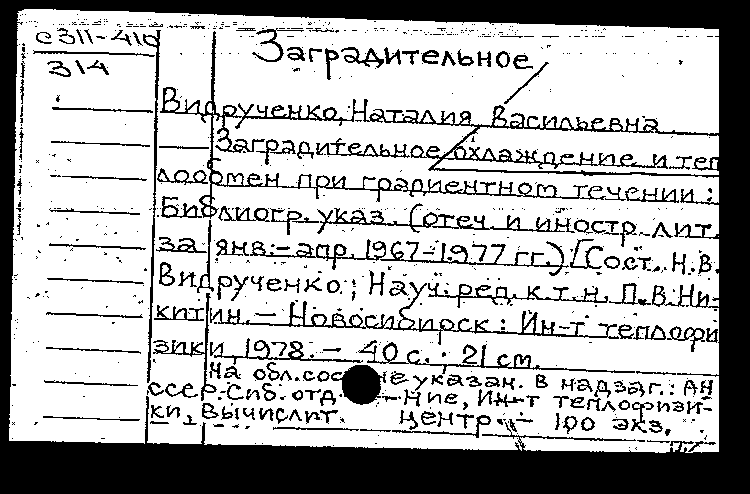 с311-410
314
Заградительное
Видрученко, Наталия Васильевна
Заградительное охлаждение и теп
лообмен при градиентном течении :
Библиогр. указ. (отеч. и иностр. лит.
за янв.-апр. 1967-1977 гг.) / Сост. Н.В.
Видрученко ; Науч. ред. к.т.н. П.В. Ни-
китин. - Новосибирск : Ин-т теплофи
зики, 1978. - 40 с. ; 21 см.
На обл. сос не указан. В надзаг.: АН
СССР. Сиб. отд -ние, Ин-т теплофизи-
ки, Вычислит. центр. - 100 экз.